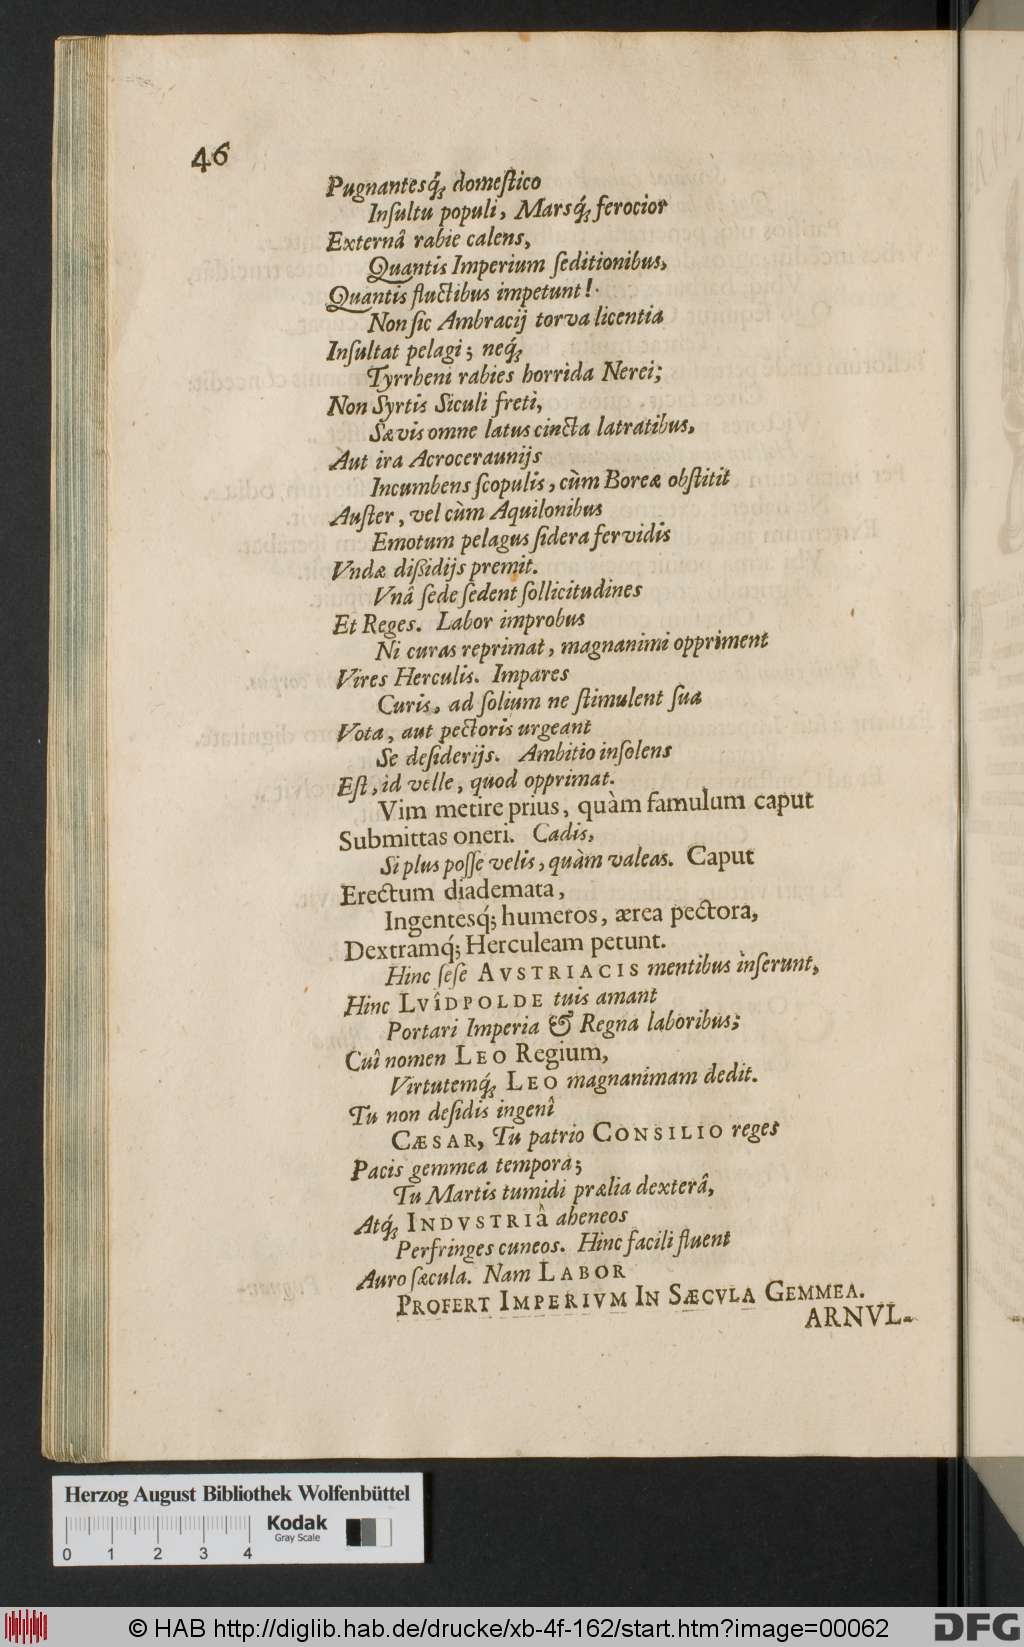 46
Pugnantesq́; domeſtico
Inſultu populi, Marsq́; ferocior
Externâ rabie calens,
Quantis Imperium ſeditionibus,
Quantis fluctibus impetunt!
Non ſic Ambracij torva licentia
Inſultat pelagi; neq́;
Tyrrheni rabies horrida Nerei;
Non Syrtis Siculi freti,
Sævis omne latus cincta latratibus,
Aut ira Acroceraunijs
Incumbens ſcopulis, cùm Boreæ obſtitit
Auſter, vel cùm Aquilonibus
Emotum pelagus ſidera fervidis
Vndæ dißidijs premit.
Vnâ ſede ſedent ſollicitudines
Et Reges. Labor improbus
Ni curas reprimat, magnanimi oppriment
Vires Herculis. Impares
Curis, ad ſolium ne ſtimulent ſua
Vota, aut pectoris urgeant
Se deſiderijs. Ambitio inſolens
Eſt, id velle, quod opprimat.
Vim metire prius, quàm famulum caput
Submittas oneri. Cadis,
Si plus poſſe velis, quàm valeas. Caput
Erectum diademata,
Ingentesq́; humeros, ærea pectora,
Dextramq́; Herculeam petunt.
Hinc ſeſe AVSTRIACIS mentibus inſerunt,
Hinc LVÎDPOLDE tuis amant
Portari Imperia & Regna laboribus;
Cuî nomen LEO Regium,
Virtutemq́; LEO magnanimam dedit.
Tu non deſidis ingenî
CÆSAR, Tu patrio CONSILIO reges
Pacis gemmea tempora;
Tu Martis tumidi prælia dexterâ,
Atq́; INDVSTRIâ aheneos
Perfringes cuneos. Hinc facili fluent
Auro ſæcula. Nam LABOR
PROFERT IMPERIVM IN SÆCVLA GEMMEA.
ARNVL-
Herzog August Bibliothek Wolfenbüttel
Kodak
Gray Scale
0 1 2 3 4
© HAB http://diglib.hab.de/drucke/xb-4f-162/start.htm?image=00062
DFG